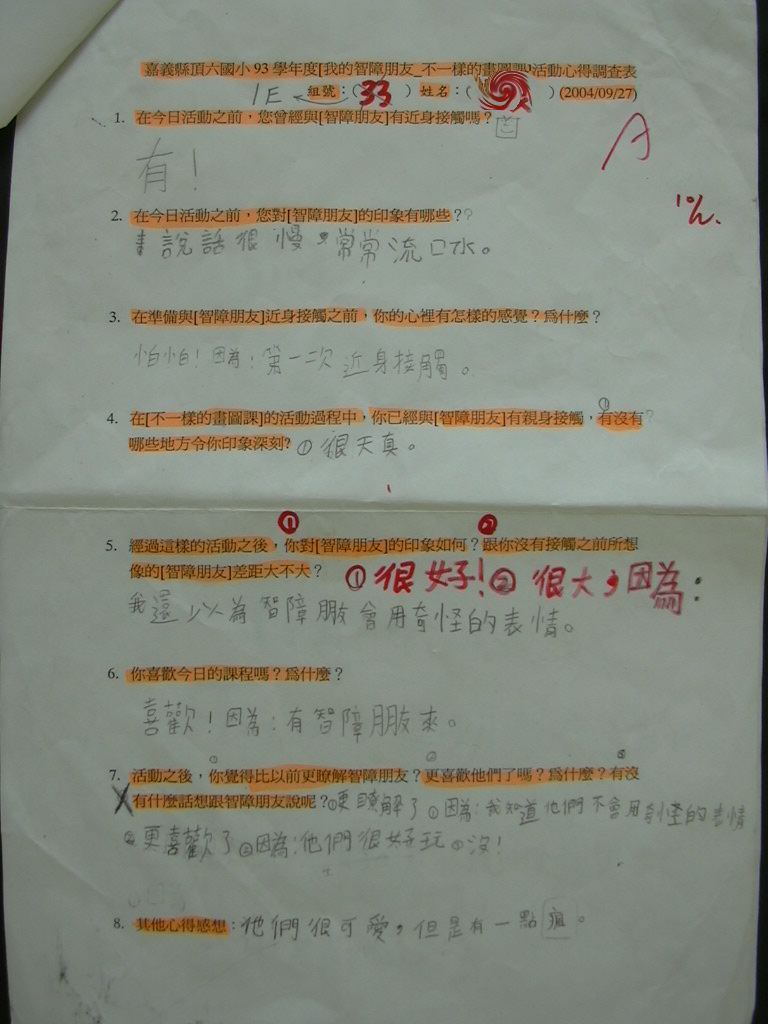 嘉義縣頂六國小93學年度[我的智障朋友_不一樣的畫圖課]活動心得調查表
1E 組號：( 33 ) 姓名：( ) (2004/09/27)
1. 在今日活動之前，您曾經與[智障朋友]有近身接觸嗎？
A
有！
10/2.
2. 在今日活動之前，您對[智障朋友]的印象有哪些？?
說話很慢，常常流口水。
3. 在準備與[智障朋友]近身接觸之前，你的心裡有怎樣的感覺？為什麼？
怕怕！因為：第一次近身接觸。
4. 在[不一樣的畫圖課]的活動過程中，你已經與[智障朋友]有親身接觸，①有沒有?
哪些地方令你印象深刻? ①很天真。
① ②
5. 經過這樣的活動之後，你對[智障朋友]的印象如何？跟你沒有接觸之前所想
像的[智障朋友]差距大不大？ ①很好！②很大，因為：
我還以為智障朋友會用奇怪的表情。
6. 你喜歡今日的課程嗎？為什麼？
喜歡！因為：有智障朋友來。
① ② ③
7. 活動之後，你覺得比以前更瞭解智障朋友？更喜歡他們了嗎？為什麼？有沒
有什麼話想跟智障朋友說呢？①更瞭解了①因為：我知道他們不會用奇怪的表情
②更喜歡了②因為：他們很好玩③沒！
8. 其他心得感想：他們很可愛，但是有一點